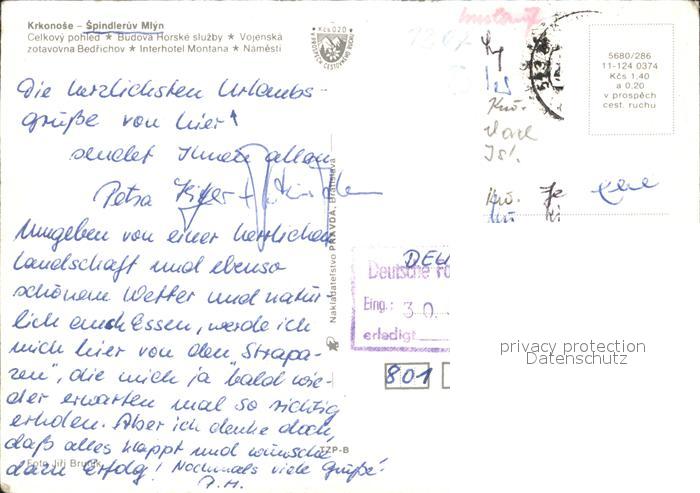 Krkonoše – Špindlerův Mlýn
Celkový pohled ★ Budova Horské služby ★ Vojenská
zotavovna Bedřichov ★ Interhotel Montana ★ Náměstí
Kčs 0.20
VE PROSPĚCH CESTOVNÍHO RUCHU
5680/286
11-124 0374
Kčs 1,40
a 0,20
v prospěch
cest. ruchu
Die herzlichsten Urlaubs-
grüße von hier
sendet Ihnen allen
Petra
Umgeben von einer herrlichen
Landschaft und ebenso
schönem Wetter und natür-
lich auch Essen, werde ich
mich hier von den "Strapa-
zen", die mich ja bald wie-
der erwarten mal so richtig
erholen. Aber ich denke doch,
daß alles klappt und wünsche
dazu Erfolg! Nochmals viele Grüße!
P.H.
Nakladatelstvo PRAVDA, Bratislava
TZP-B
Foto Jiří
Deutsche
Eing.: 30.
erledigt
801
privacy protection
Datenschutz